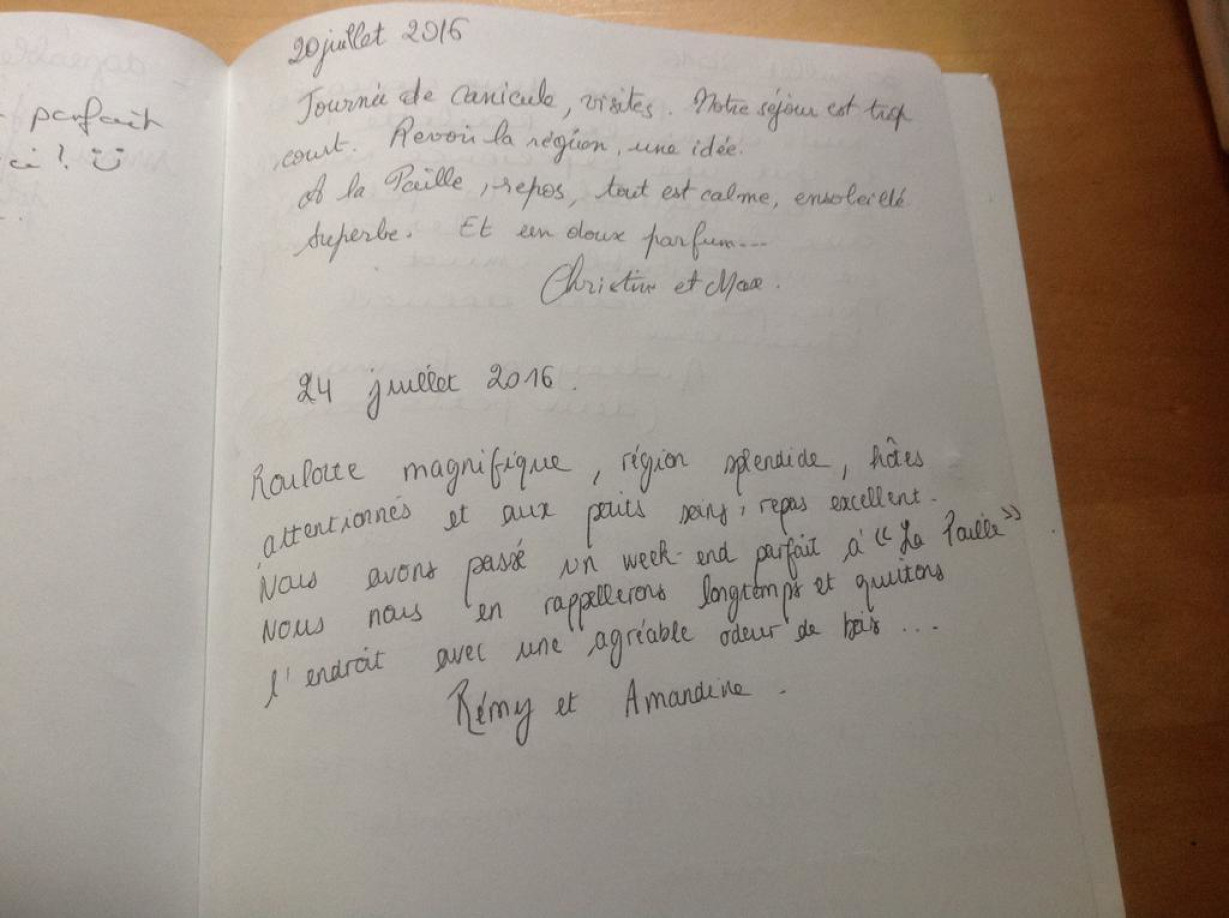 parfait
ci ! ☺
20 juillet 2016
Journée de canicule, visites. Notre séjour est trop
court. Revoir la région, une idée.
A la Paille, repos, tout est calme, ensoleillé
superbe. Et un doux parfum...
Christine et Max.
24 juillet 2016.
Roulotte magnifique, région splendide, hôtes
attentionnés et aux petits soins, repas excellent.
Nous avons passé un week-end parfait à "La Paille"
Nous nous en rappellerons longtemps et quittons
l'endroit avec une agréable odeur de bois ...
Rémy et Amandine.